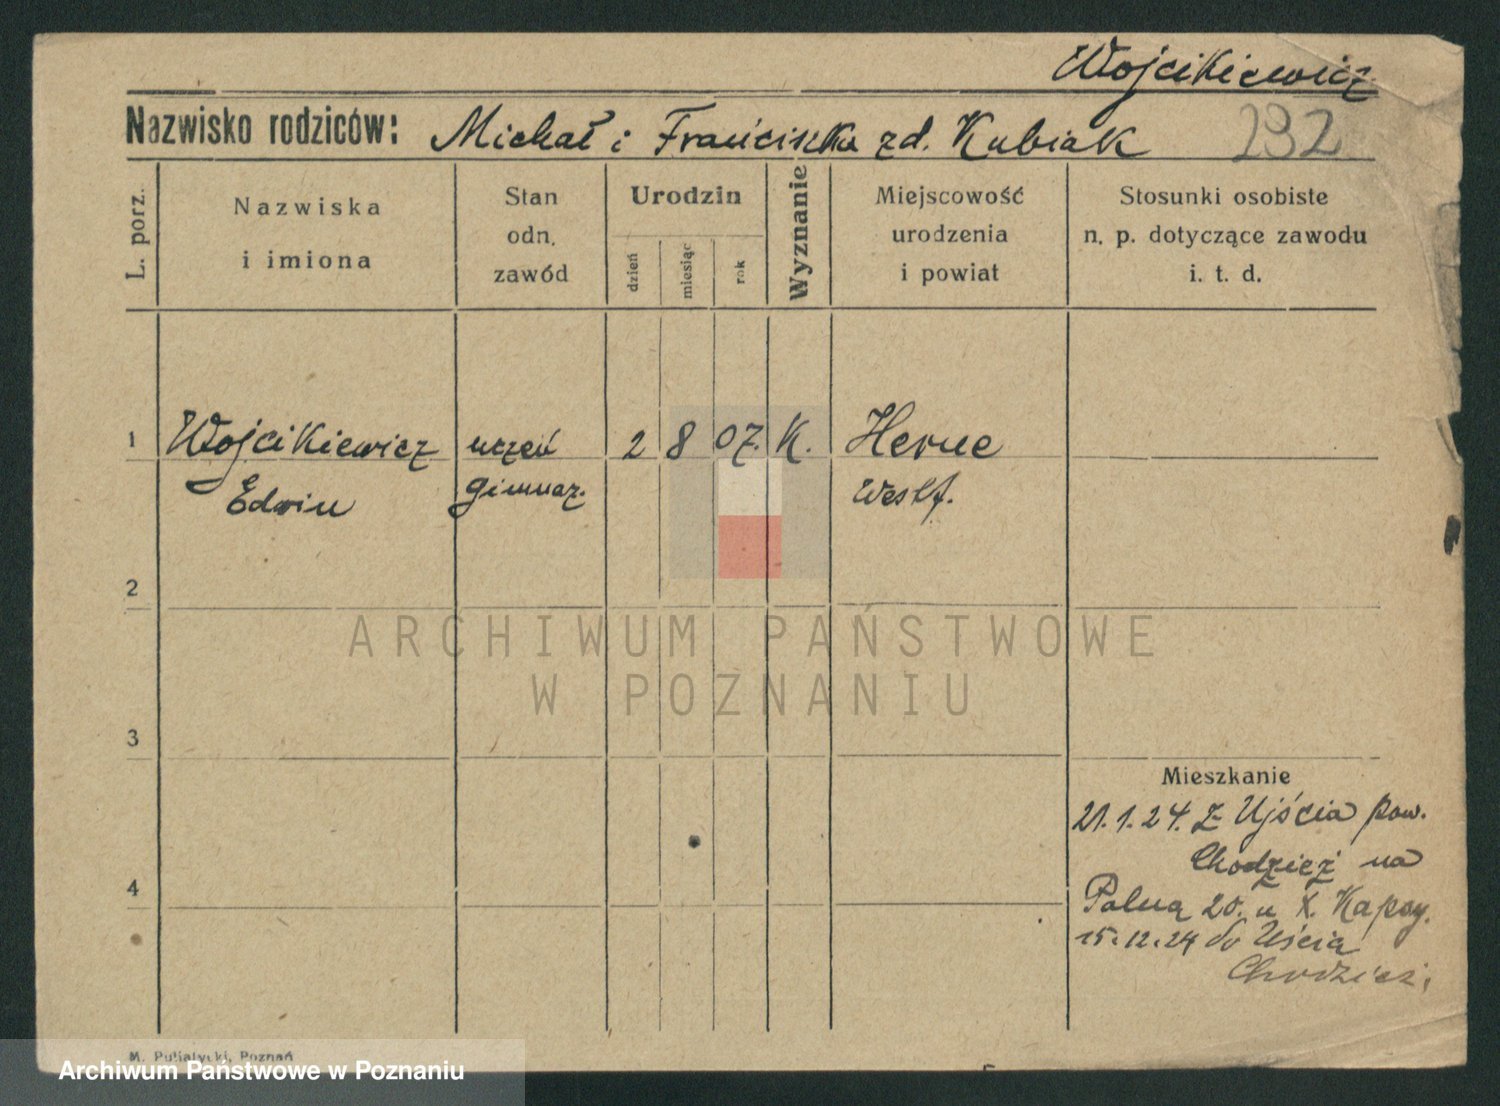 Wojcikiewicz
Nazwisko rodziców: Michał i Franciszka zd. Kubiak 292
L. porz.
Nazwiska
i imiona
Stan
odn.
zawód
Urodzin
dzień
miesiąc
rok
Wyznanie
Miejscowość
urodzenia
i powiat
Stosunki osobiste
n. p. dotyczące zawodu
i. t. d.
1 Wojcikiewicz uczeń 2 8 07. K. Herne
Edwin gimnaz. Westf.
2
3
Mieszkanie
21.1.24. z Ujścia pow.
Chodzież na
4
Polną 20. u X.
15.12.24 do Uścia
Chodzież,
M. Putiatycki, Poznań
ARCHIWUM PAŃSTWOWE
W POZNANIU
Archiwum Państwowe w Poznaniu